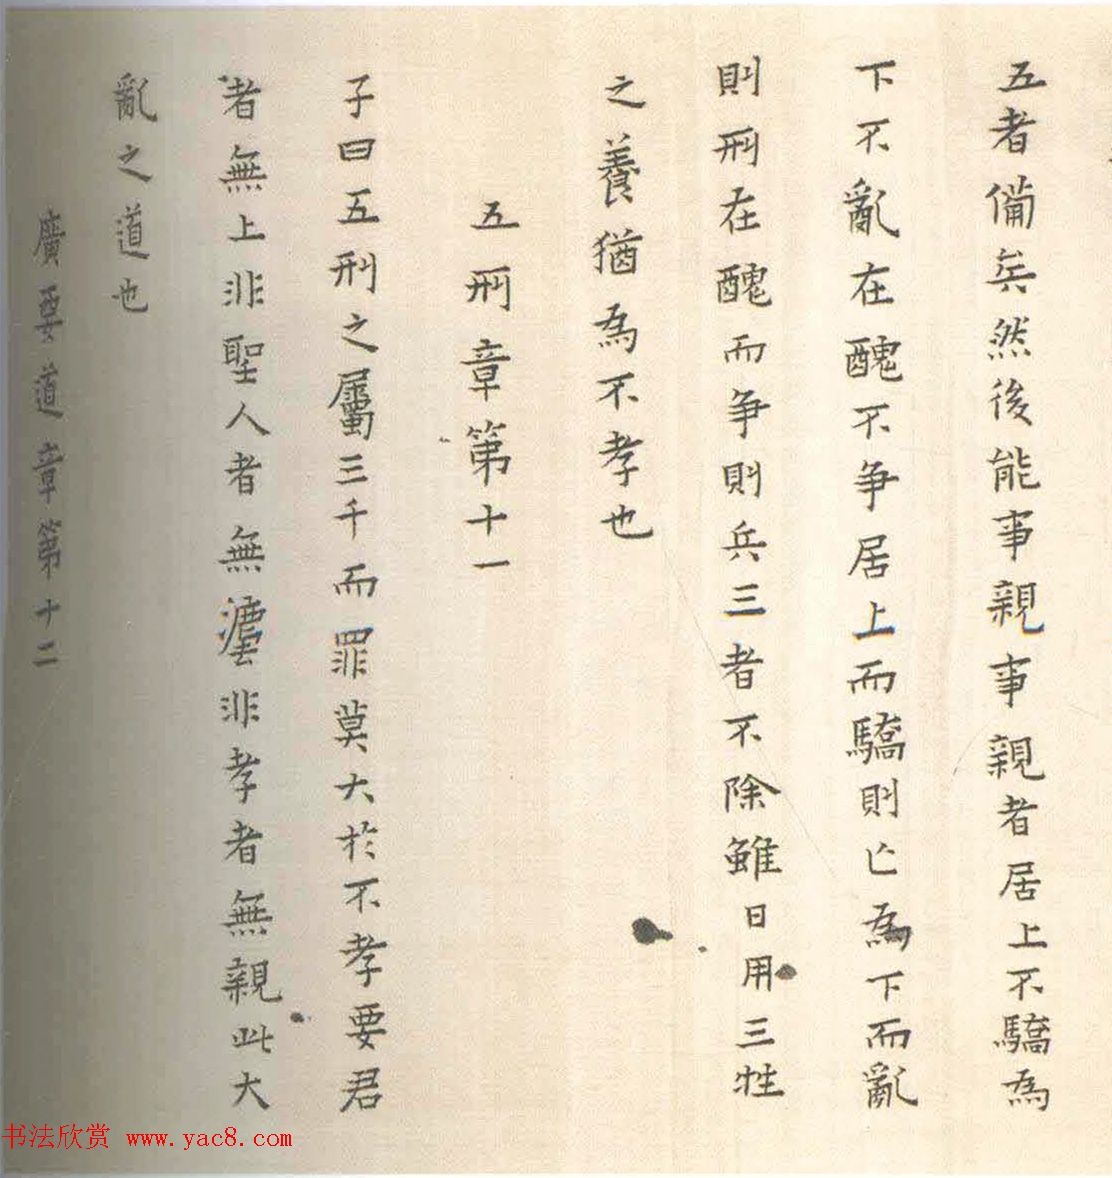 五者備矣然後能事親事親者居上不驕為
下不亂在醜不争居上而驕則亡為下而亂
則刑在醜而争則兵三者不除雖日用三牲
之養猶為不孝也
五刑章第十一
子曰五刑之屬三千而罪莫大於不孝要君
者無上非聖人者無灋非孝者無親此大
亂之道也
廣要道章第十二
书法欣赏 www.yac8.com